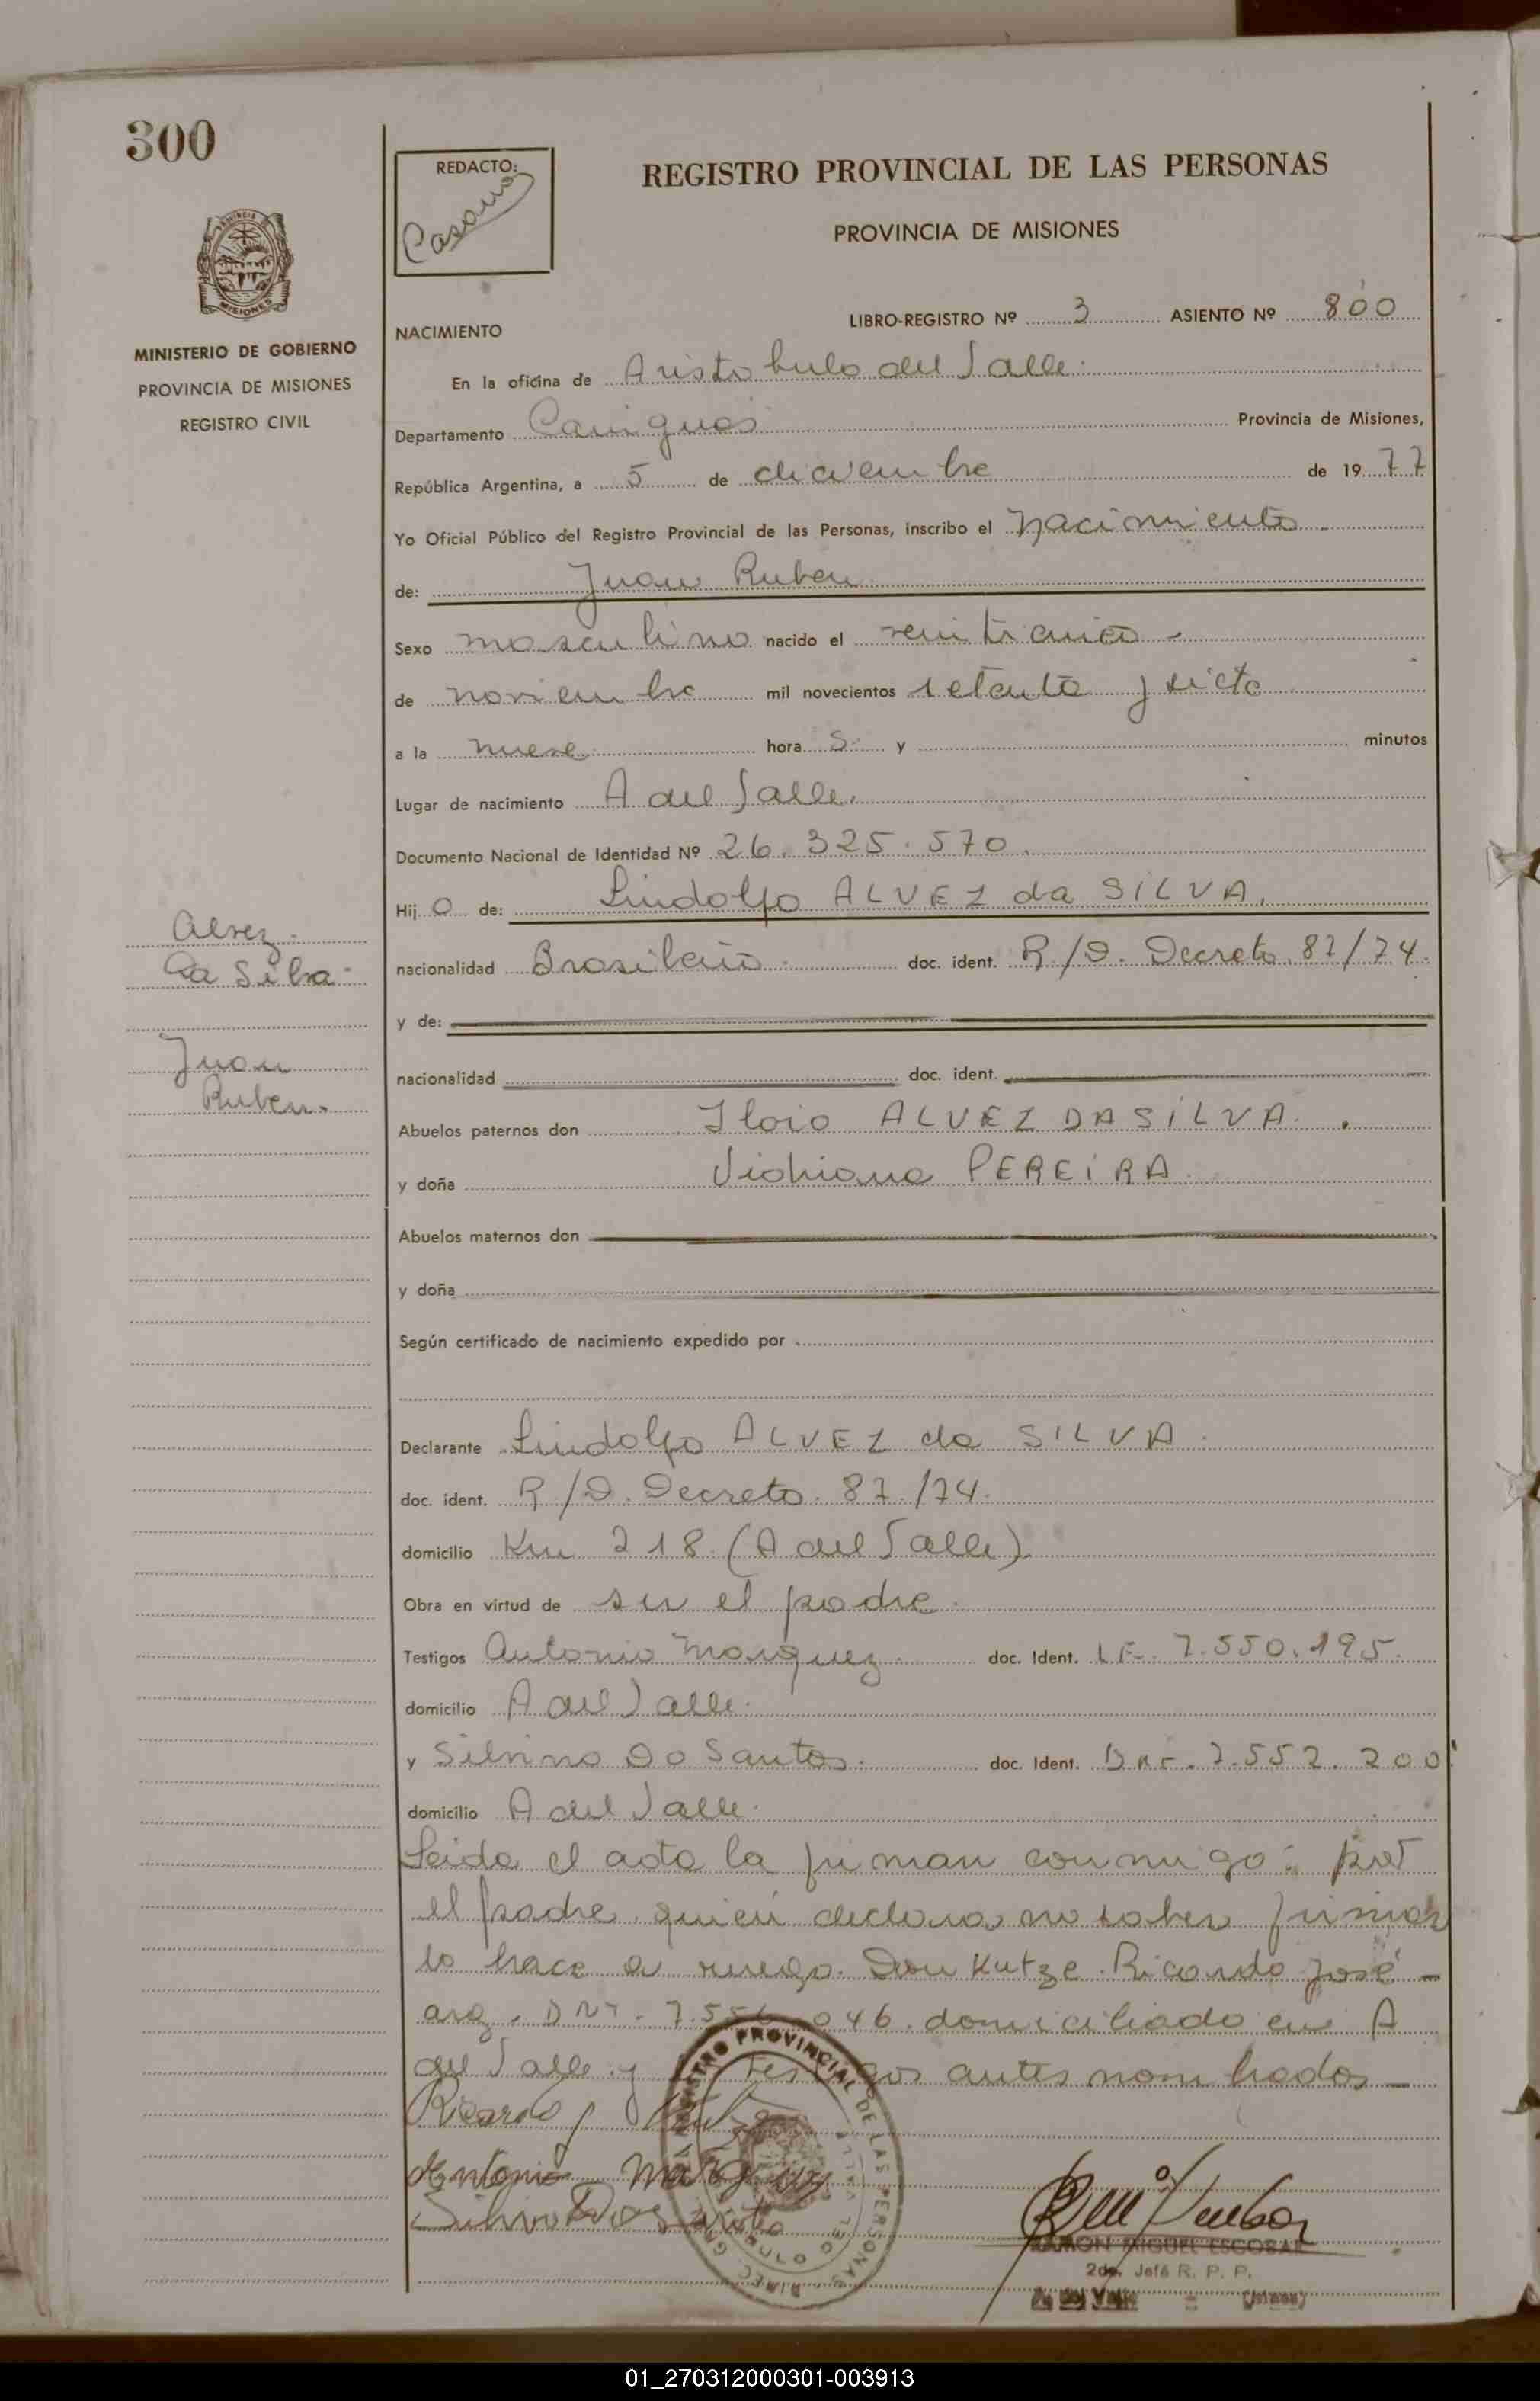 300
REDACTO:
REGISTRO PROVINCIAL DE LAS PERSONAS
PROVINCIA DE MISIONES
MISIONES
MINISTERIO DE GOBIERNO
PROVINCIA DE MISIONES
REGISTRO CIVIL
LIBRO-REGISTRO Nº 3 ASIENTO Nº 800
NACIMIENTO
En la oficina de Aristobulo del Valle.
Departamento Cainguas Provincia de Misiones,
República Argentina, a 5 de diciembre de 1977
Yo Oficial Público del Registro Provincial de las Personas, inscribo el nacimiento
de: Juan Ruben
Sexo masculino nacido el veinticinco
de noviembre mil novecientos setenta y siete
a la nueve hora s y minutos
Lugar de nacimiento A del Valle.
Documento Nacional de Identidad Nº 26.325.570.
Hij o de: Lindolfo ALVEZ da SILVA.
Alvez
Da Silva
Juan
Ruben.
nacionalidad Brasileño doc. ident. R/D. Decreto 87/74.
y de:
nacionalidad doc. ident.
Abuelos paternos don ALVEZ DA SILVA.
y doña PEREIRA
Abuelos maternos don
y doña
Según certificado de nacimiento expedido por
Declarante Lindolfo ALVEZ da SILVA
doc. ident. R/D. Decreto. 87/74.
domicilio Km 218 (A del Valle)
Obra en virtud de ser el padre
Testigos Antonio Marquez doc. Ident. L.E. 7.550.195.
domicilio A del Valle.
y Silvino Do Santos. doc. Ident. DNI. 7.552.200
domicilio A del Valle.
Leida el acta la firman conmigo: por
el padre quien declara no saber firmar
lo hace a ruego Don Kutze Ricardo José -
arg. DNI. 046 domiciliado en A
del Valle y testigos antes nombrados -
Ricardo J
Antonio Marquez
REGISTRO PROVINCIAL DE LAS PERSONAS
RAMON MIGUEL ESCOBAR
2do. Jefe R. P. P.
A. del Valle - (Misiones)
01_270312000301-003913